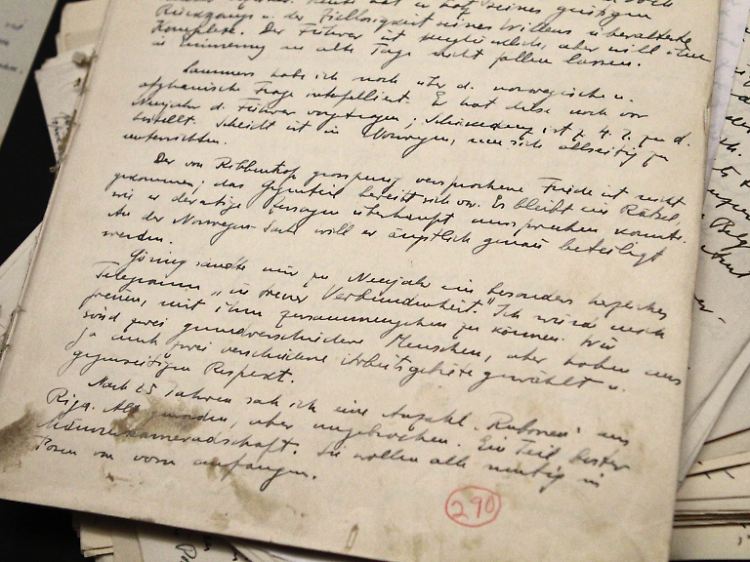 seines geistigen
Rückgangs u. der Ziellosigkeit seines Willens u. überalterte
Komplexe. Der Führer ist unglücklich, aber will ihn
in Erinnerung an alte Tage nicht fallen lassen.
Lammers habe ich noch über d. norwegische u.
afghanische Frage interpelliert. Er hat beides noch vor
Neujahr d. Führer vorgetragen; ist z. 4. 1. zu d.
bestellt. Scheidt ist in Norwegen, um sich allseitig zu
unterrichten.
Der von Ribbentrop grosspurig versprochene Friede ist nicht
gekommen, das Gegenteil bereitet sich vor. Es bleibt ein Rätsel,
wie er derartige Zusagen überhaupt aussprechen konnte.
An der Norwegen-Sache will er ängstlich genau beteiligt
werden.
Göring sandte mir zu Neujahr ein besonders herzliches
Telegramm "in treuer Verbundenheit". Ich würde mich
freuen, mit ihm zusammengehen zu können. Wir
sind zwei grundverschiedene Menschen, aber haben uns
ja auch zwei verschiedene Arbeitsgebiete gewählt u.
gegenseitigen Respekt.
Nach 25 Jahren sah ich eine Anzahl "Rubonen" aus
Riga. Alt geworden, aber ungebrochen. Ein Teil bester
Männerkameradschaft. Sie wollen alle mutig in
Posen von vorn anfangen.
290